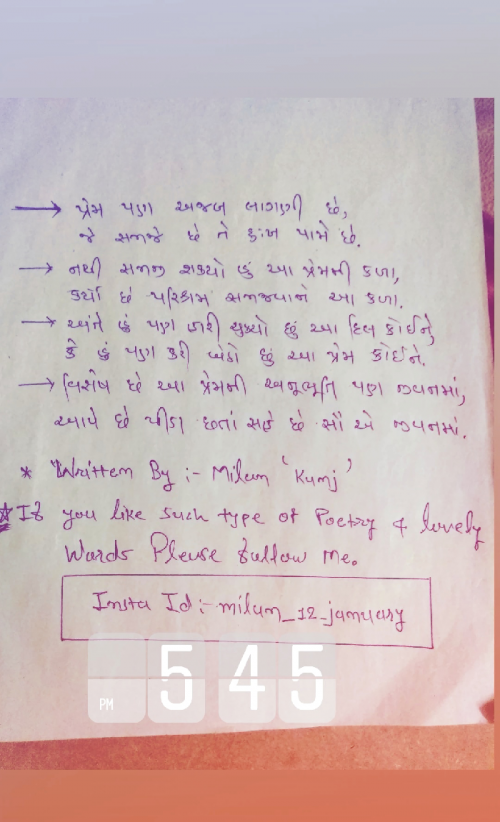 → પ્રેમ પણ અજબ લાગણી છે,
જે સમજે છે તે દુઃખ પામે છે.
→ નથી સમજી શક્યો હું આ પ્રેમની કળા,
કર્યો છે પરિશ્રમ સમજવાને આ કળા.
→ અંતે હું પણ હારી ચુક્યો છું આ દિલ કોઈને,
કે હું પણ કરી બેઠો છું આ પ્રેમ કોઈને.
→ વિશેષ છે આ પ્રેમની અનુભૂતિ પણ જીવનમાં,
આપે છે પીડા છતાં સહે છે સૌ એ જીવનમાં.
* Written By :- Milan 'Kunj'
* If you like such type of Poetry & lovely
Words Please follow Me.
Insta Id :- milan_12_january
PM 5 45